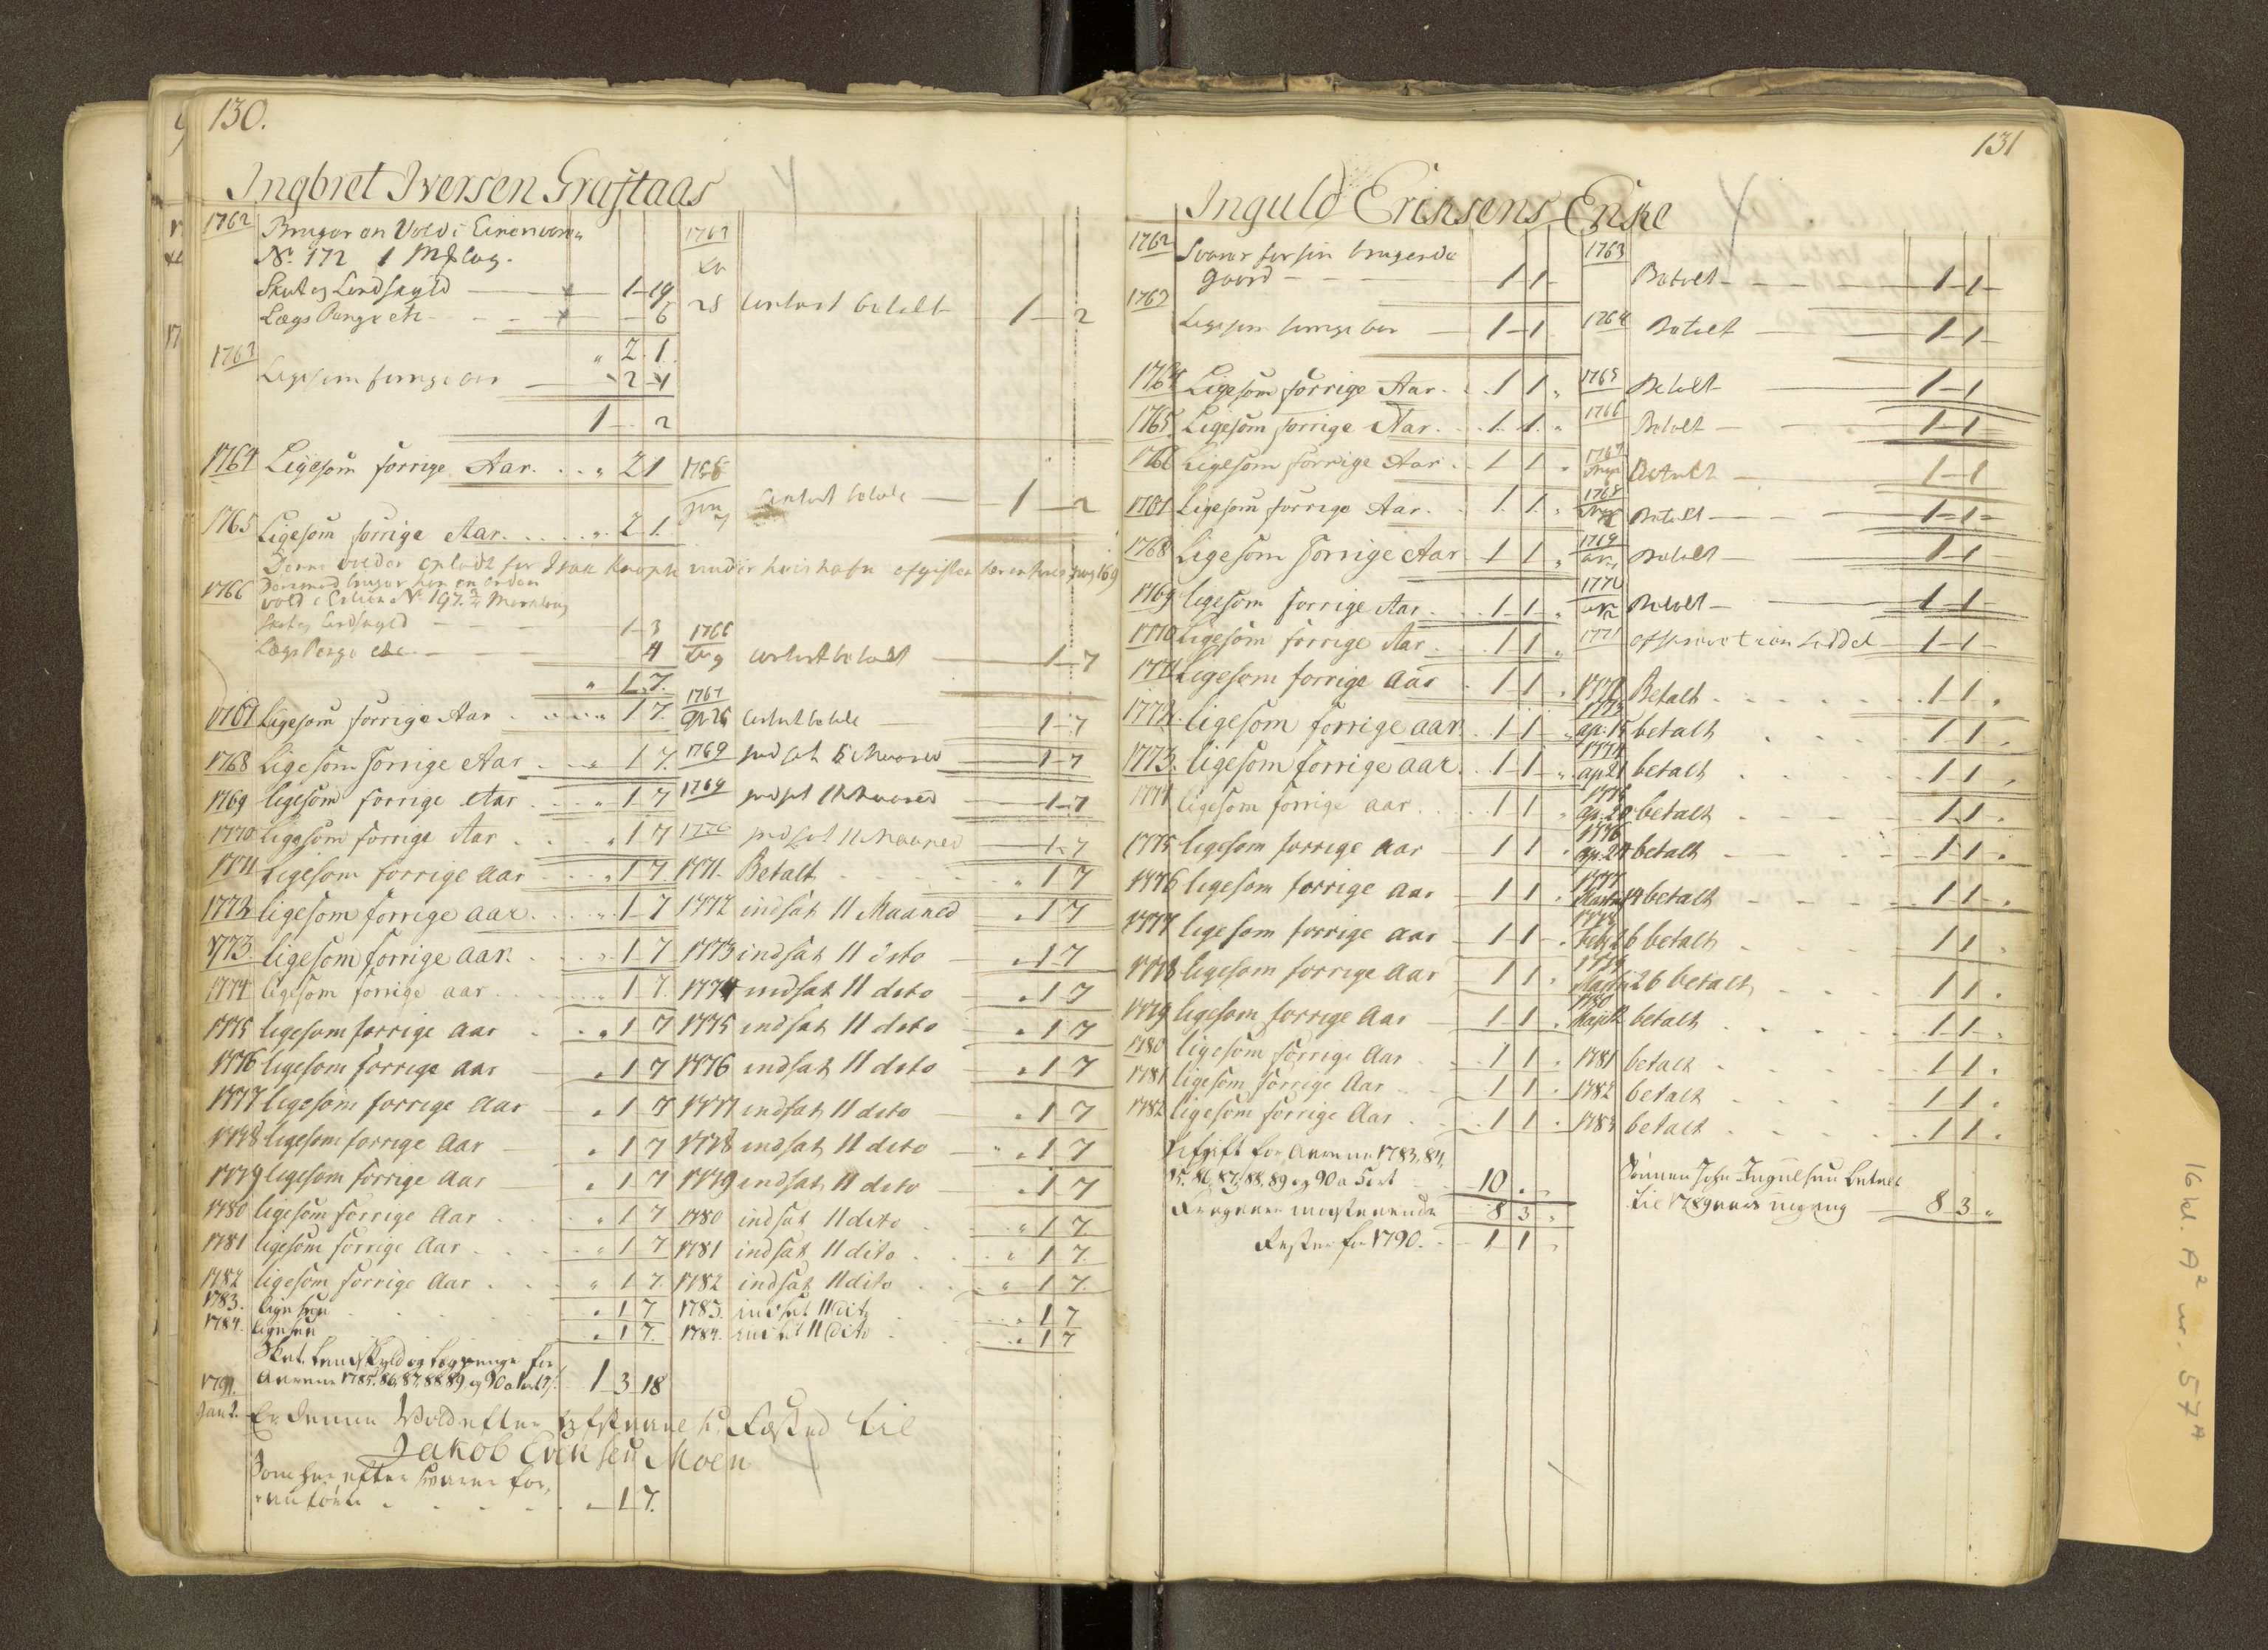 130.
Ingbret Iversen Grastaas
1762 Bruger en Vold i
No. 172 1 Mk lag.
Skat og Landskyld 1 19
Lægs Penge etc 6
" 2 1
1763 Ligesom forrige aar 2 1
1 2
1763
28 Contant betalt 1 2
1764 Ligesom forrige Aar. " 2 1
1765 Ligesom forrige Aar. " 2 1
Contant betalt 1 2
1766
No. 197.
Skat og Landskyld 1 3
Lægs Penge etc. 4
" 1 7.
1766
Aug Contant betalt 1 7
1767 Ligesom forrige Aar " 1 7. 1767 Ap. 26 Contant betalt 1 7
1768 Ligesom forrige Aar " 1 7. 1769 1 7
1769 ligesom forrige Aar " 1 7 1769 1 7
1770 ligesom forrige Aar " 1 7 1770 indsat 11 Maaned 1 7
1771 Ligesom forrige Aar " 1 7. 1771. Betalt " 1 7
1772 ligesom forrige aar " 1 7 1772 indsat 11 Maaned " 1 7
1773. ligesom forrige aar. " 1 7 1773 indsat 11 dito " 1 7
1774 ligesom forrige aar " 1 7. 1774 indsat 11 dito " 1 7
1775 ligesom forrige Aar " 1 7 1775 indsat 11 dito " 1 7
1776 ligesom forrige Aar " 1 7 1776 indsat 11 dito " 1 7
1777 ligesom forrige Aar " 1 7 1777 indsat 11 dito " 1 7
1778 ligesom forrige Aar " 1 7 1778 indsat 11 dito " 1 7
1779 ligesom forrige Aar " 1 7 1779 indsat 11 dito " 1 7
1780 ligesom forrige Aar " 1 7 1780 indsat 11 dito " 1 7.
1781 ligesom forrige Aar " 1 7 1781 indsat 11 dito " 1 7.
1782 ligesom forrige Aar " 1 7. 1782 indsat 11 dito " 1 7.
1783. ligesom " 1 7 1783. indsat 11 dito " 1 7
1784. ligesom " 1 7. 1784. indsat 11 dito " 1 7
Skat, Landskyld og Lægspenge for
Aarene 1785. 86, 87, 88 89 og 90 1 3 18
1791.
Er denne Vold efter fæsted til
Jakob Evensen Moen
Som herefter svarer for,
" 1 7.
131
Inguld Eriksens Enke
1762 Svarer for sin brugende
gaard 1 1
1763 Betalt 1 1
1763 Ligesom forrige Aar 1 1 1764 Betalt 1 1
1764 Ligesom forrige Aar 1 1 " 1765 Betalt 1 1
1765 Ligesom forrige Aar. 1 1 " 1766 Betalt 1 1
1766 Ligesom forrige Aar 1 1 " 1767 Betalt 1 1
1767 Ligesom forrige Aar. 1 1 " 1768 Betalt 1 1
1768 Ligesom forrige Aar 1 1 " 1769 Betalt 1 1
1769 ligesom forrige Aar 1 1 " 1770 Betalt 1 1
1770 ligesom forrige Aar 1 1 " 1771 1 1
1771 Ligesom forrige aar 1 1 " 1772 Betalt 1 1 "
1772. ligesom forrige aar. 1 1 " 1773 ap: 15 betalt 1 1 "
1773. ligesom forrige aar. 1 1 " 1774 ap 21 betalt 1 1 "
1774 ligesom forrige aar 1 1 " 1775 ap: 20 betalt 1 1 "
1775 ligesom forrige Aar 1 1 " 1776 ap. 24 betalt 1 1 "
1776 ligesom forrige Aar 1 1 " 1777 Marty 19 betalt 1 1 "
1777 ligesom forrige Aar 1 1 " 1778 feb. 26 betalt 1 1 "
1778 ligesom forrige Aar 1 1 " 1779 Marty 26 betalt, 1 1 "
1779 ligesom forrige Aar 1 1 " 1780 Maji 12 betalt 1 1 "
1780 ligesom forrige Aar 1 1 " 1781 betalt 1 1 "
1781 ligesom forrige Aar 1 1 " 1782 betalt 1 1 "
1782 ligesom forrige Aar 1 1 " 1783 betalt 1 1 "
Afgift for Aarene 1783, 84,
85, 86, 87, 88, 89 og 90 a 5 ort 10 "
8 3 "
Rester for 1790. 1 1 "
Sønnen John Ingulsen betalt
til 1789 aars udgang 8 3 "
16 kl. A² nr. 57 A